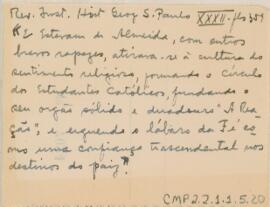 Rev. Inst. Hist Geog S. Paulo XXXII - fls 359
"E Estevam de Almeida, com outros
bravos rapazes, atirava-se à cultura do
sentimento religioso, formando o Circulo
dos Estudantes Católicos, fundando o
seu orgão sólido e duradouro "A Rea-
ção", e erguendo o lábaro da Fé co-
mo uma confiança trascendental nos
destinos do paiz".
CMP2.2.1.1.5.20